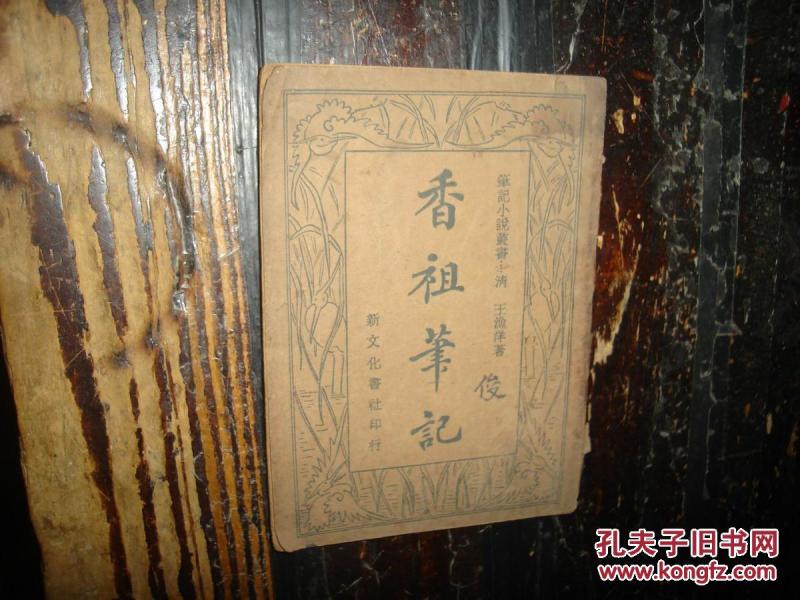 筆記小說叢書：清 王漁洋著
俊
香祖筆記
新文化書社印行
孔夫子旧书网
www.kongfz.com